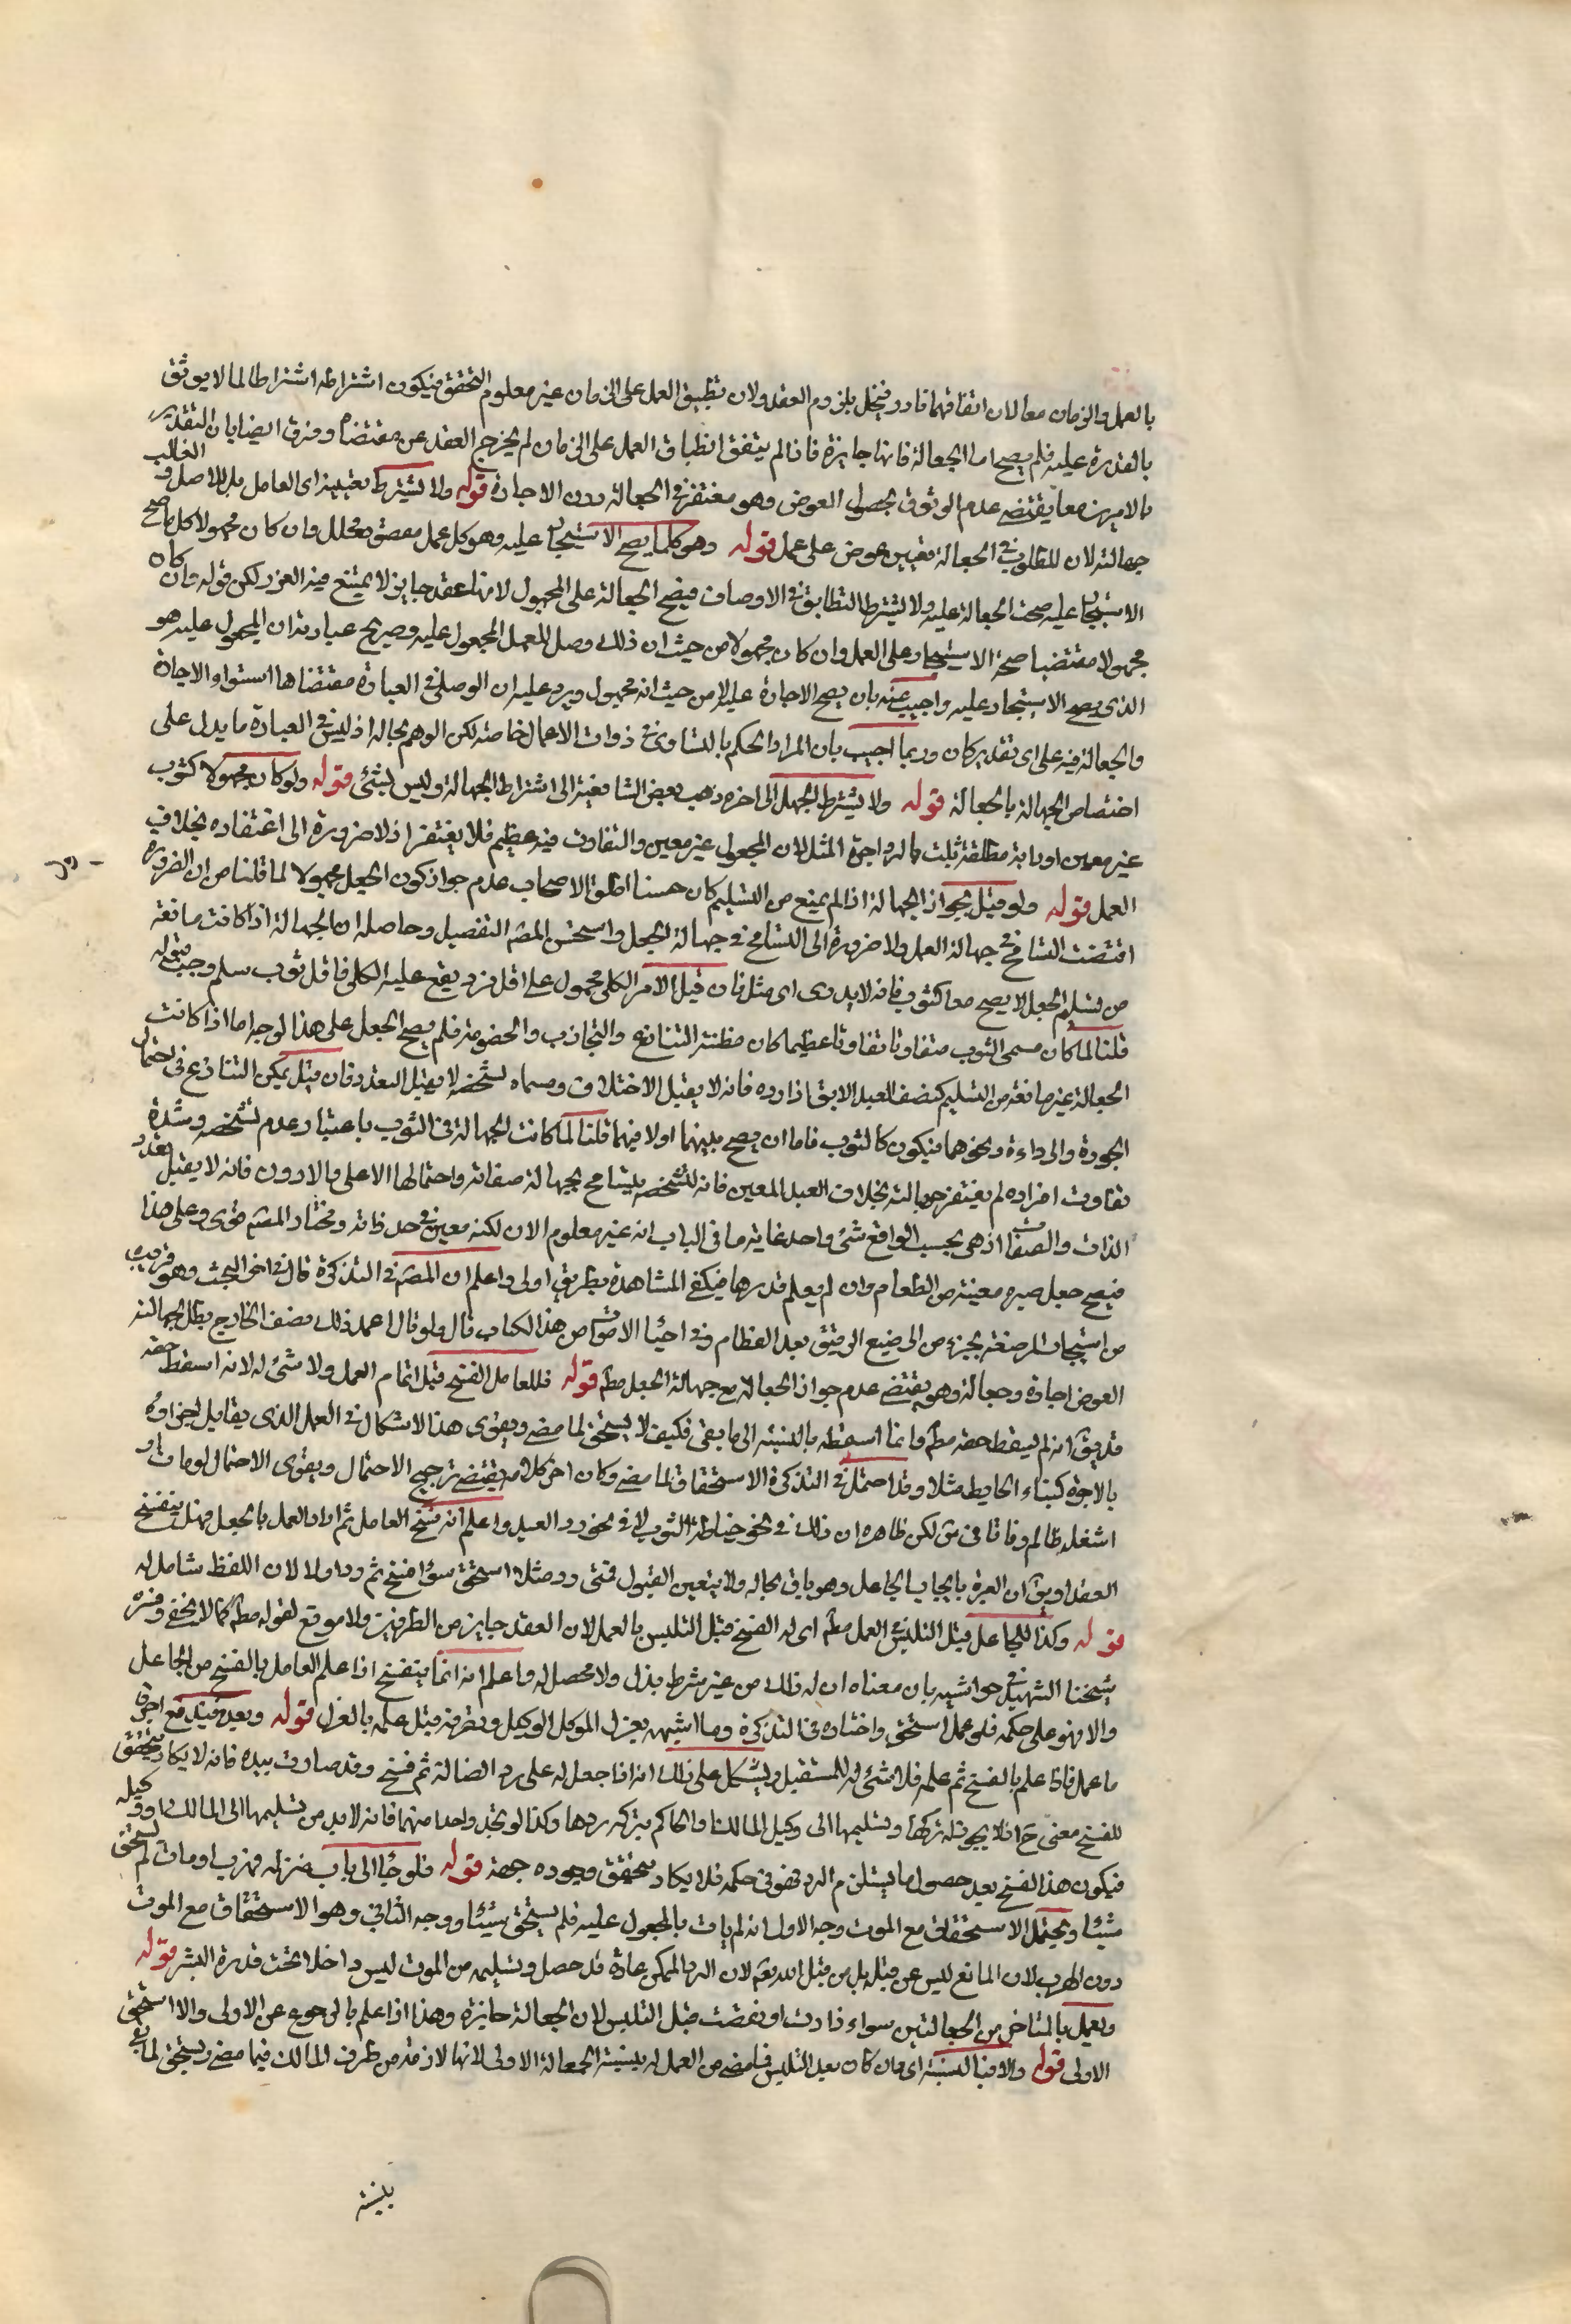 بالعمل والزمان معا لان اتفاقهما نادر فيخل بلزوم العقد ولان تطبيق العمل على الزمان غير معلوم التحقق فيكون اشتراطه اشتراطا لما لا يوثق
بالقدرة عليه فلم يصح اما الجعالة فانها جايزة فاذا لم يتفق انطباق العمل على الزمان لم يخرج العقد عن مقتضاه وفرق ايضا بان التقدير
بالامرين معا يقتضي عدم الوثوق بحصول العوض وهو مغتفر في الجعالة دون الاجارة قوله ولا يشترط تعيينه اى العامل بل الاصل و الغالب
جهالته لان المطلوب في الجعالة تعيين عوض على عمل قوله وهو كلما يصح الاستيجار عليه وهو كل عمل مقصود محلل وان كان مجهولا كل ما صح
الاستيجار عليه صحت الجعالة عليه ولا يشترط التطابق في الاوصاف فيصح الجعالة على المجهول لانها عقد جايز لا يمتنع فيه الغرر لكن قوله وان كان
مجهولا مقتضيا صحة الاستيجار على العمل وان كان مجهولا من حيث ان ذلك وصل للعمل المجعول عليه وصريح عبارته ان المجهول عليه هو
الذى يصح الاستيجار عليه واجيب عنه بان يصح الاجارة عليه لا من حيث انه مجهول ويرد عليه ان الوصل في العبارة مقتضاها استواء الاجارة
والجعالة فيه على اى تقدير كان وربما اجيب بان المراد الحكم بالتساوى في ذوات الاعمال خاصة لكن الوهم بحاله اذ ليس في العبارة ما يدل على
اختصاص الجهالة بالجعالة قوله ولا يشترط الجهل الى اخره ذهب بعض الشافعية الى اشتراط الجهالة وليس بشئ قوله ولو كان مجهولا كثوب
غير معين او دابة مطلقة ثبت بالرد اجرة المثل لان المجعول غير معين والتفاوت فيه عظيم فلا يغتفر اذ لا ضرورة الى اغتفاره بخلاف
العمل قوله ولو قيل بجواز الجهالة اذا لم يمنع من التسليم كان حسنا اطلق الاصحاب عدم جواز كون الجعل مجهولا لما قلنا من ان الضرورة
اقتضت التسامح في جهالة العمل ولا ضرورة الى التسامح في جهالة الجعل واستحسن المصه التفصيل وحاصله ان الجهالة اذا كانت مانعة
من تسليم الجعل لا يصح معها كثوب فانه لا يدرى اى مثل فان قيل الامر الكلى محمول على اقل فرد يقع عليه الكلى فاقل ثوب سلم وجب قبوله
قلنا لما كان مسمى الثوب متفاوتا تفاوتا عظيما كان مظنة التنازع والتجاذب والخصومة فلم يصح الجعل على هذا لوجه اما اذا كانت
الجعالة غير مانعة من التسليم كنصف العبد الابق اذا رده فانه لا يقبل الاختلاف ومسماه لتشخصه لا يقبل التعدد فان قيل يمكن التنازع في احتمال
الجودة والرداءة ونحوهما فيكون كالثوب فاما ان يصح بينهما اولا فيهما قلنا لما كانت الجهالة في الثوب باعتبار عدم تشخصه وشدة
تفاوت افراده لم يغتفر جهالته بخلاف العبد المعين فانه لتشخصه يتسامح بجهالة صفاته واحتمالها الاعلى والادون فانه لا يقبل تعدد
الذات والصفات اذ هى بحسب الواقع شئ واحد غاية ما في الباب انه غير معلوم الان لكنه معين في حد ذاته ومختار المصه قوى وعلى هذا
فيصح جعل صبرة معينة من الطعام وان لم يعلم قدرها فيكفى المشاهدة بطريق اولى واعلم ان المصه في التذكرة قال في اخر البحث وهو قريب
من استيجار المرضعة بجزء من الرضيع الرقيق بعد الفطام وفي احياء الاموات من هذا الكتاب قال ولو قال اعمد ذلك ونصف الخارج بطل لجهالة
العوض اجارة وجعالة وهو يقتضى عدم جواز الجعالة مع جهالة الجعل مطه قوله فللعامل الفسخ قبل اتمام العمل ولا شئ له لانه اسقط حقه
قد يق انه لم يسقط حقه مطه وانما اسقطه بالنسبة الى ما بقى فكيف لا يستحق لما مضى ويقوى هذا الاشكال في العمل الذى يقابل اجزاؤه
بالاجرة كبناء الحايط مثلا وقد احتمل في التذكرة الاستحقاق لما مضى وكان اخر كلامه يقتضى ترجيح الاحتمال ويقوى الاحتمال لو مات او
اشغله ظالم وفاقا في ش لكن ظاهره ان ذلك في نحو خياطة الثوب لا في نحو رد العبد واعلم انه لو فسخ العامل ثم اراد العمل بالجعل فهل ينفسخ
العقد او يق ان العبرة بايجاب الجاعل وهو باق بحاله ولا يتعين القبول فمتى رد مثلا استحق سواء فسخ ثم رد او لا لان اللفظ شامل له
قوله وكذا للجاعل قبل التلبس في العمل مطه اى له الفسخ قبل التلبس بالعمل لان العقد جايز من الطرفين ولا موقع لقوله مطه كما لا يخفى وفسره
شيخنا الشهيد في حواشيه بان معناه ان له ذلك من غير شرط بذل ولا محصل له واعلم انه انما ينفسخ اذا علم العامل بالفسخ من الجاعل
والا فهو على حكمه فلو عمل استحق واختاره في التذكرة وما اشبهه بعزل الموكل الوكيل وتصرفه قبل علمه بالعزل قوله وبعده فيدفع اجرة
ما عمل فاذا علم بالفسخ ثم علمه فلا شئ له للمستقبل ويشكل على ذلك انه اذا جعل له على رد الضالة ثم فسخ وقد صارت بيده فانه لا يكاد يتحقق
للفسخ معنى ح اذ لا يجوز له تركها وتسليمها الى وكيل المالك او الحاكم بتركه ردها وكذا لو تجدد واحدا منهما فانه لا بد من تسليمها الى المالك او وكيله
فيكون هذا الفسخ بعد حصول ما يستلزم الرد فهو في حكمه فلا يكاد يتحقق وجوده جهة قوله فلو جاء الى باب منزله فهرب او مات لم يستحق
شيئا ويحتمل الاستحقاق مع الموت وجه الاول انه لم يات بالمجعول عليه فلم يستحق شيئا ووجه الثاني وهو الاستحقاق مع الموت
دون الهرب لان المانع ليس من قبله بل من قبل الله تعه لان الرد الممكن عادة قد حصل وتسليمه من الموت ليس داخلا تحت قدرة البشر قوله
ويعمل بالمتاخر من الجعالتين سواء زادت او نقصت قبل التلبس لان الجعالة جايزة وهذا اذا علم بالرجوع عن الاولى والا استحق
الاولى قوله والا فبالنسبة اى وان كان بعد التلبس فما مضى من العمل له بنسبة الجعالة الاولى لانها لازمة من طرف المالك فيما مضى ويستحق لما بقى
بنسبة